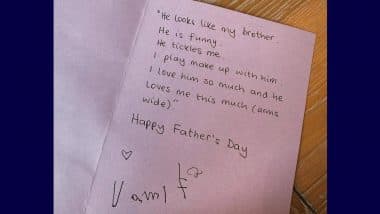 "He looks like my brother.
He is funny.
He tickles me.
I play make up with him.
I love him so much and he
loves me this much (arms
wide)"
Happy Father's Day